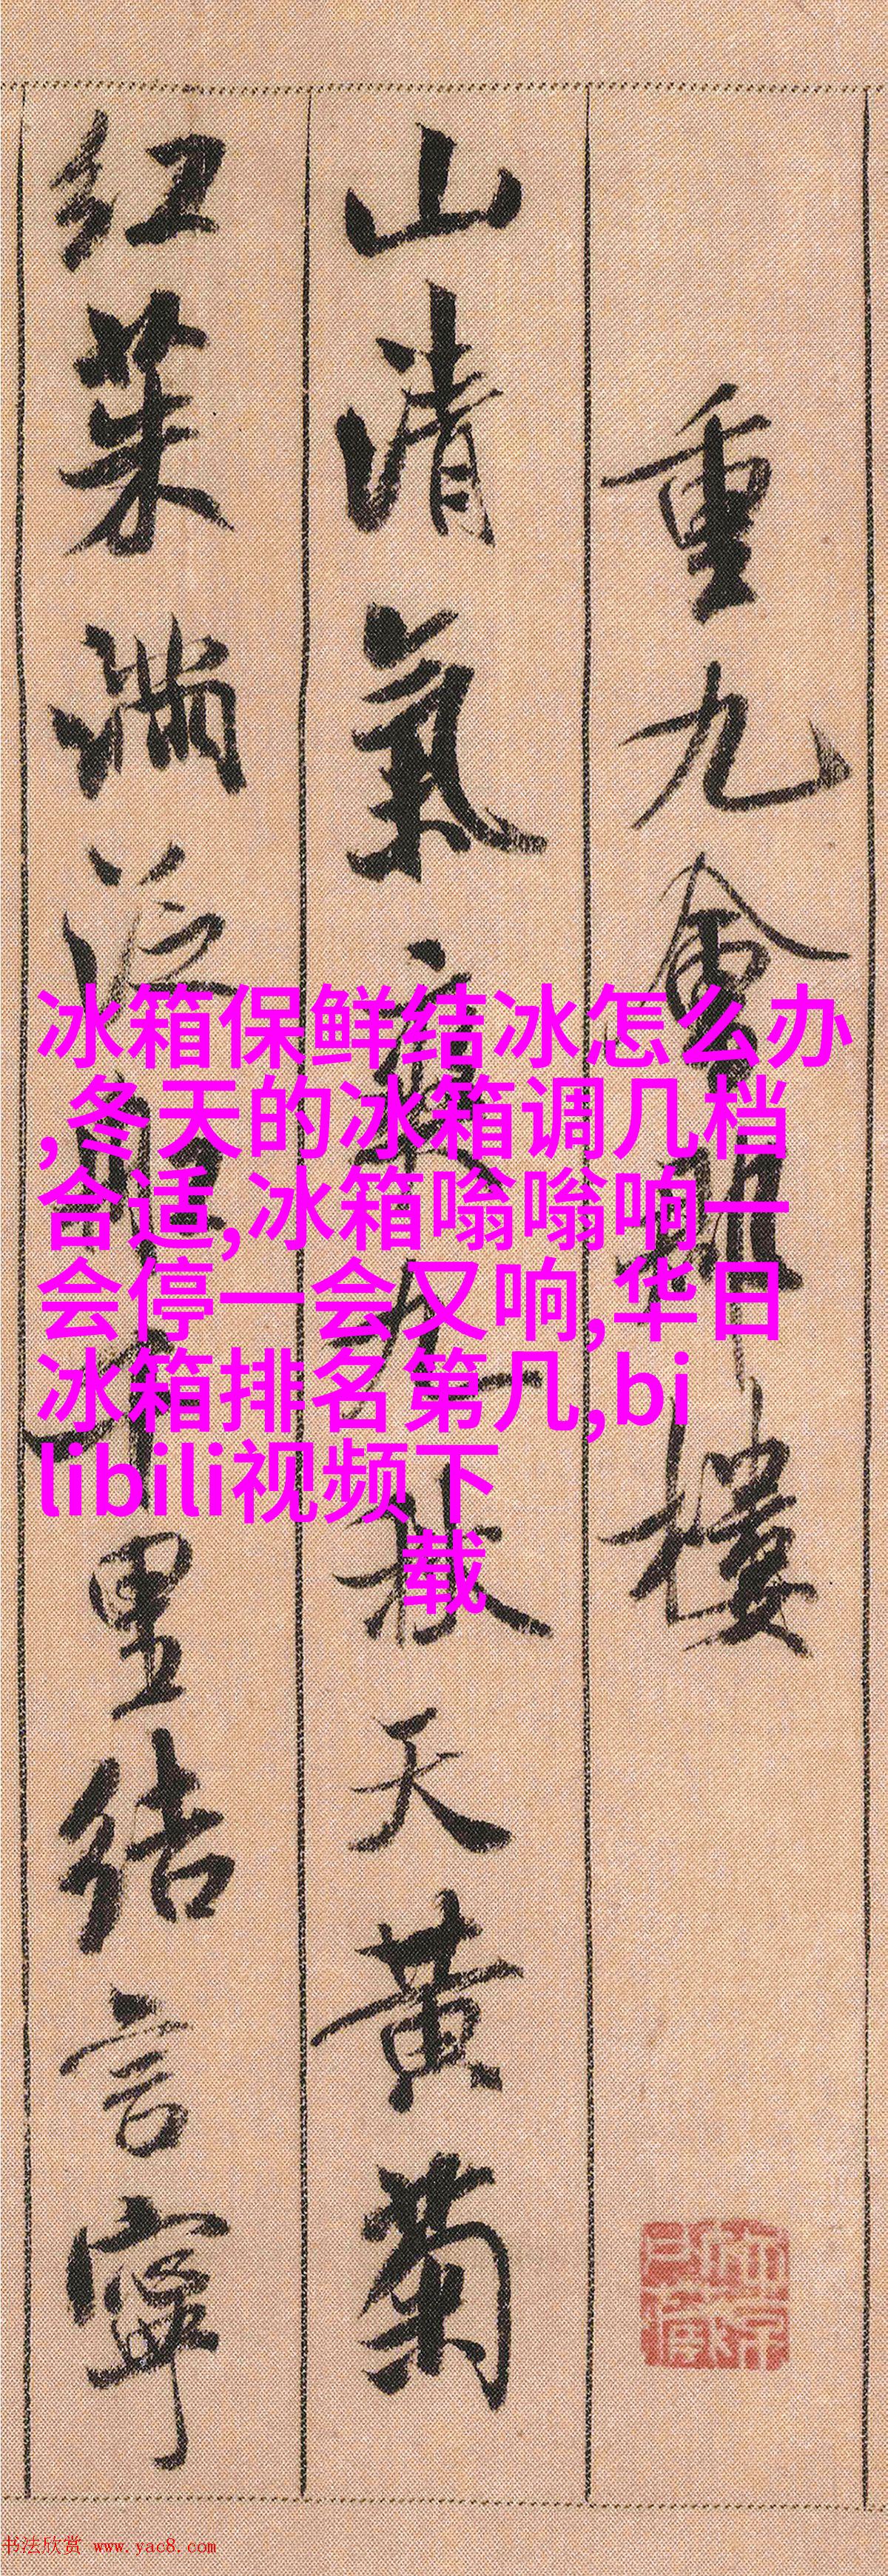 重九會郡樓
山清氣爽九秋天黃菊
紅茱滿泛船千里結言寧
冰箱保鲜结冰怎么办
,冬天的冰箱调几档
合适,冰箱嗡嗡响一
会停一会又响,华日
冰箱排名第几,bi
libili视频下
载
书法欣赏 www.yac8.com